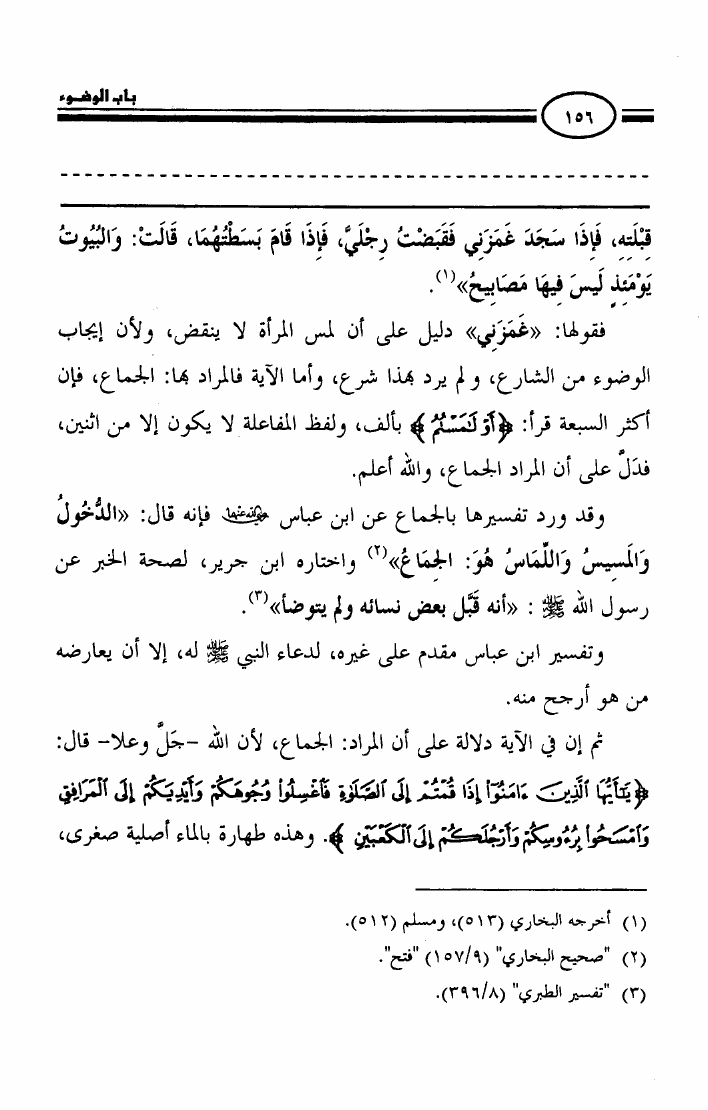 باب الوضوء
١٥٦
قِبْلَتِهِ، فَإِذَا سَجَدَ غَمَزَنِي فَقَبَضْتُ رِجْلَيَّ، فَإِذَا قَامَ بَسَطْتُهُمَا، قَالَتْ: وَالْبُيُوتُ
يَوْمَئِذٍ لَيْسَ فِيهَا مَصَابِيحُ»(١).
فقولها: «غَمَزَنِي» دليل على أن لمس المرأة لا ينقض، ولأن إيجاب
الوضوء من الشارع، ولم يرد بهذا شرع، وأما الآية فالمراد بها: الجماع، فإن
أكثر السبعة قرأ: ﴿أَوْ لَٰمَسْتُمُ﴾ بألف، ولفظ المفاعلة لا يكون إلا من اثنين،
فدَلَّ على أن المراد الجماع، والله أعلم.
وقد ورد تفسيرها بالجماع عن ابن عباس رضي الله عنهما فإنه قال: «الدُّخُولُ
وَالمَسِيسُ وَاللِّمَاسُ هُوَ: الجِمَاعُ»(٢) واختاره ابن جرير، لصحة الخبر عن
رسول الله ﷺ : «أنه قَبَّل بعض نسائه ولم يتوضأ»(٣).
وتفسير ابن عباس مقدم على غيره، لدعاء النبي ﷺ له، إلا أن يعارضه
من هو أرجح منه.
ثم إن في الآية دلالة على أن المراد: الجماع، لأن الله -جَلَّ وعلا- قال:
﴿يَٰٓأَيُّهَا ٱلَّذِينَ ءَامَنُوٓا۟ إِذَا قُمْتُمْ إِلَى ٱلصَّلَوٰةِ فَٱغْسِلُوا۟ وُجُوهَكُمْ وَأَيْدِيَكُمْ إِلَى ٱلْمَرَافِقِ
وَٱمْسَحُوا۟ بِرُءُوسِكُمْ وَأَرْجُلَكُمْ إِلَى ٱلْكَعْبَيْنِ﴾. وهذه طهارة بالماء أصلية صغرى،
(١) أخرجه البخاري (٥١٣)، ومسلم (٥١٢).
(٢) "صحيح البخاري" (١٥٧/٩) "فتح".
(٣) "تفسير الطبري" (٣٩٦/٨).